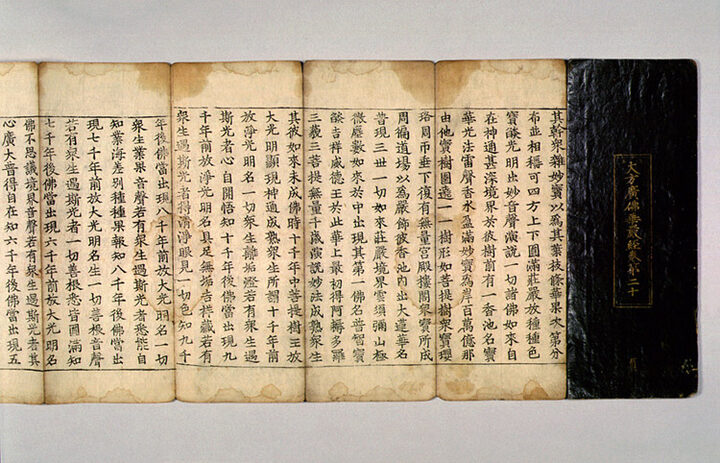 大方廣佛華嚴經卷第二十
其幹眾雜妙寶以為其葉枝條華果次第分
布並相稱可四方上下圓滿莊嚴放種種色
寶𦦨光明出妙音聲演說一切諸佛如來自
在神通甚深境界於彼樹前有一香池名寶
華光法雷聲香水盈滿妙寶為岸百萬億那
由他寶樹圍遶一一樹形如菩提樹眾寶瓔
珞周帀垂下復有無量宮殿樓閣眾寶所成
周徧道場以為嚴飾彼香池內出大蓮華名
普現三世一切如來莊嚴境界雲須彌山極
微塵數如來於中出現其第一佛名普智寶
𦦨吉祥威德王於此華上最初得阿耨多羅
三藐三菩提無量千歲演說妙法成熟眾生
其彼如來未成佛時十千年中菩提樹王放
大光明顯現神通成熟眾生所謂十千年前
放淨光明名一切眾生離垢燈若有眾生遇
斯光者心自開悟知十千年後佛當出現九
千年前放淨光明名具足無垢吉祥藏若有
眾生遇斯光者得清淨眼見一切色知九千
年後佛當出現八千年前放大光明名一切
眾生業果音聲若有眾生遇斯光者悉能自
知業海差別種種果報知八千年後佛當出
現七千年前放大光明名生一切善根音聲
若有眾生遇斯光者一切善根悉皆圓滿知
七千年後佛當出現六千年前放大光明名
佛不思議境界音聲若有眾生遇斯光者其
心廣大普得自在知六千年後佛當出現五